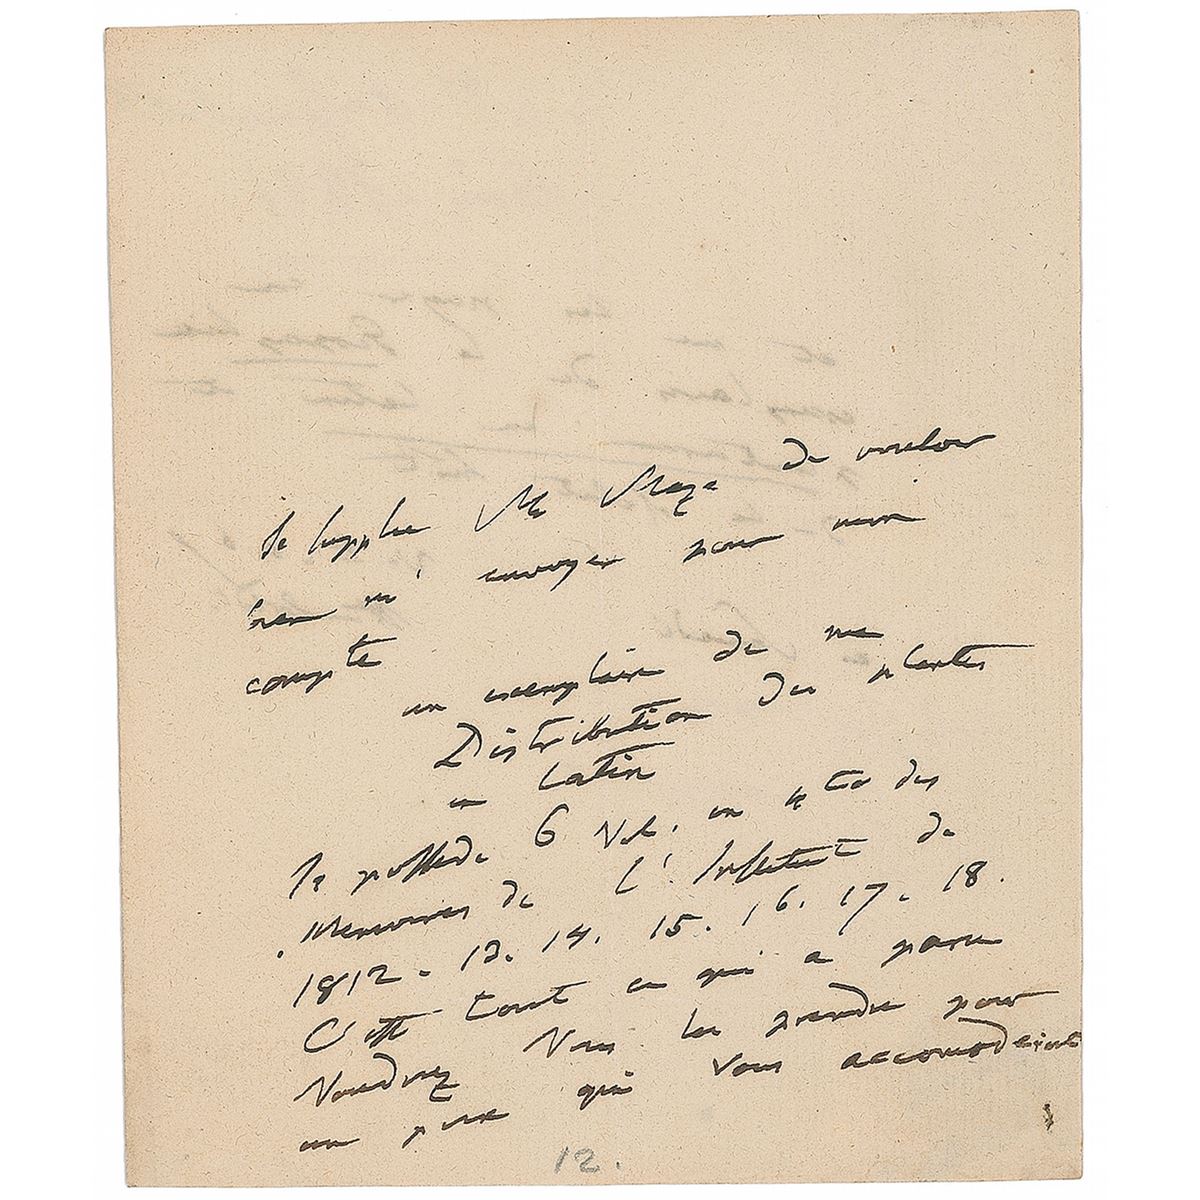 Je supplie Mr Maze de vouloir
bien m'envoyer pour mon
compte
un exemplaire de ma
Distribution des plantes
en Latin
Je possede 6 Vol. en 4to des
Memoires de l'Institut de
1812. 13. 14. 15. 16. 17. 18.
C'est tout ce qui a paru
Voudriez Vous les prendre pour
un prix qui Vous accomoderoit
12.